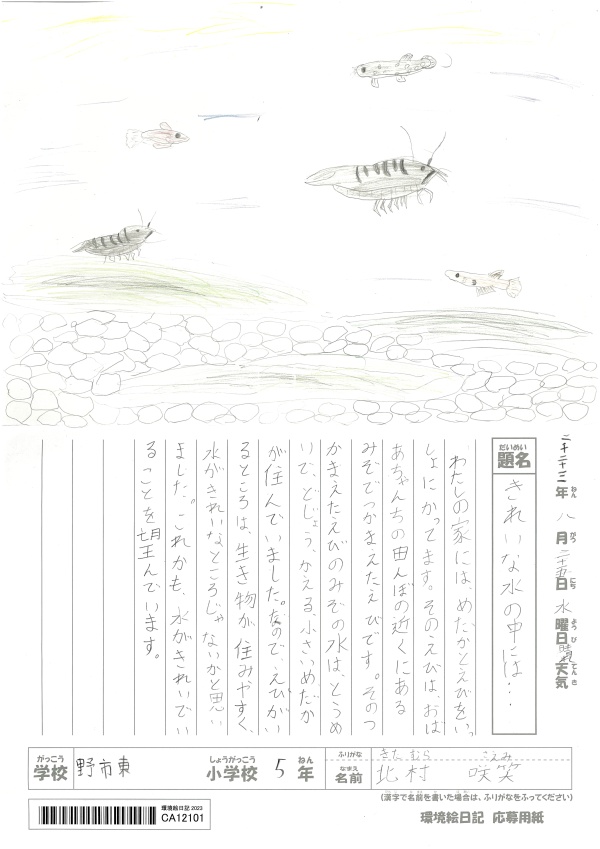 二千二十三年 八月 二十五日 水曜日 晴れ 天気
ねん がつ にち ようび てんき
だいめい
題名
きれいな水の中には・・・
わたしの家には、めだかとえびをいっ
しょにかってます。そのえびは、おば
あちゃんちの田んぼの近くにある
みぞでつかまえたえびです。そのつ
かまえたえびのみぞの水は、とうめ
いで、どじょう、かえる、小さいめだか
が住んでいました。なので、えびがい
るところは、生き物が住みやすく、
水がきれいなところじゃないかと思い
ました。これかも、水がきれいでい
ることを望んでいます。
がっこう しょうがっこう ねん
学校 野市東 小学校 5年
ふりがな きたむら さえみ
なまえ
名前 北村 咲笑
(漢字で名前を書いた場合は、ふりがなをふってください)
環境絵日記 2023
CA12101
環境絵日記 応募用紙